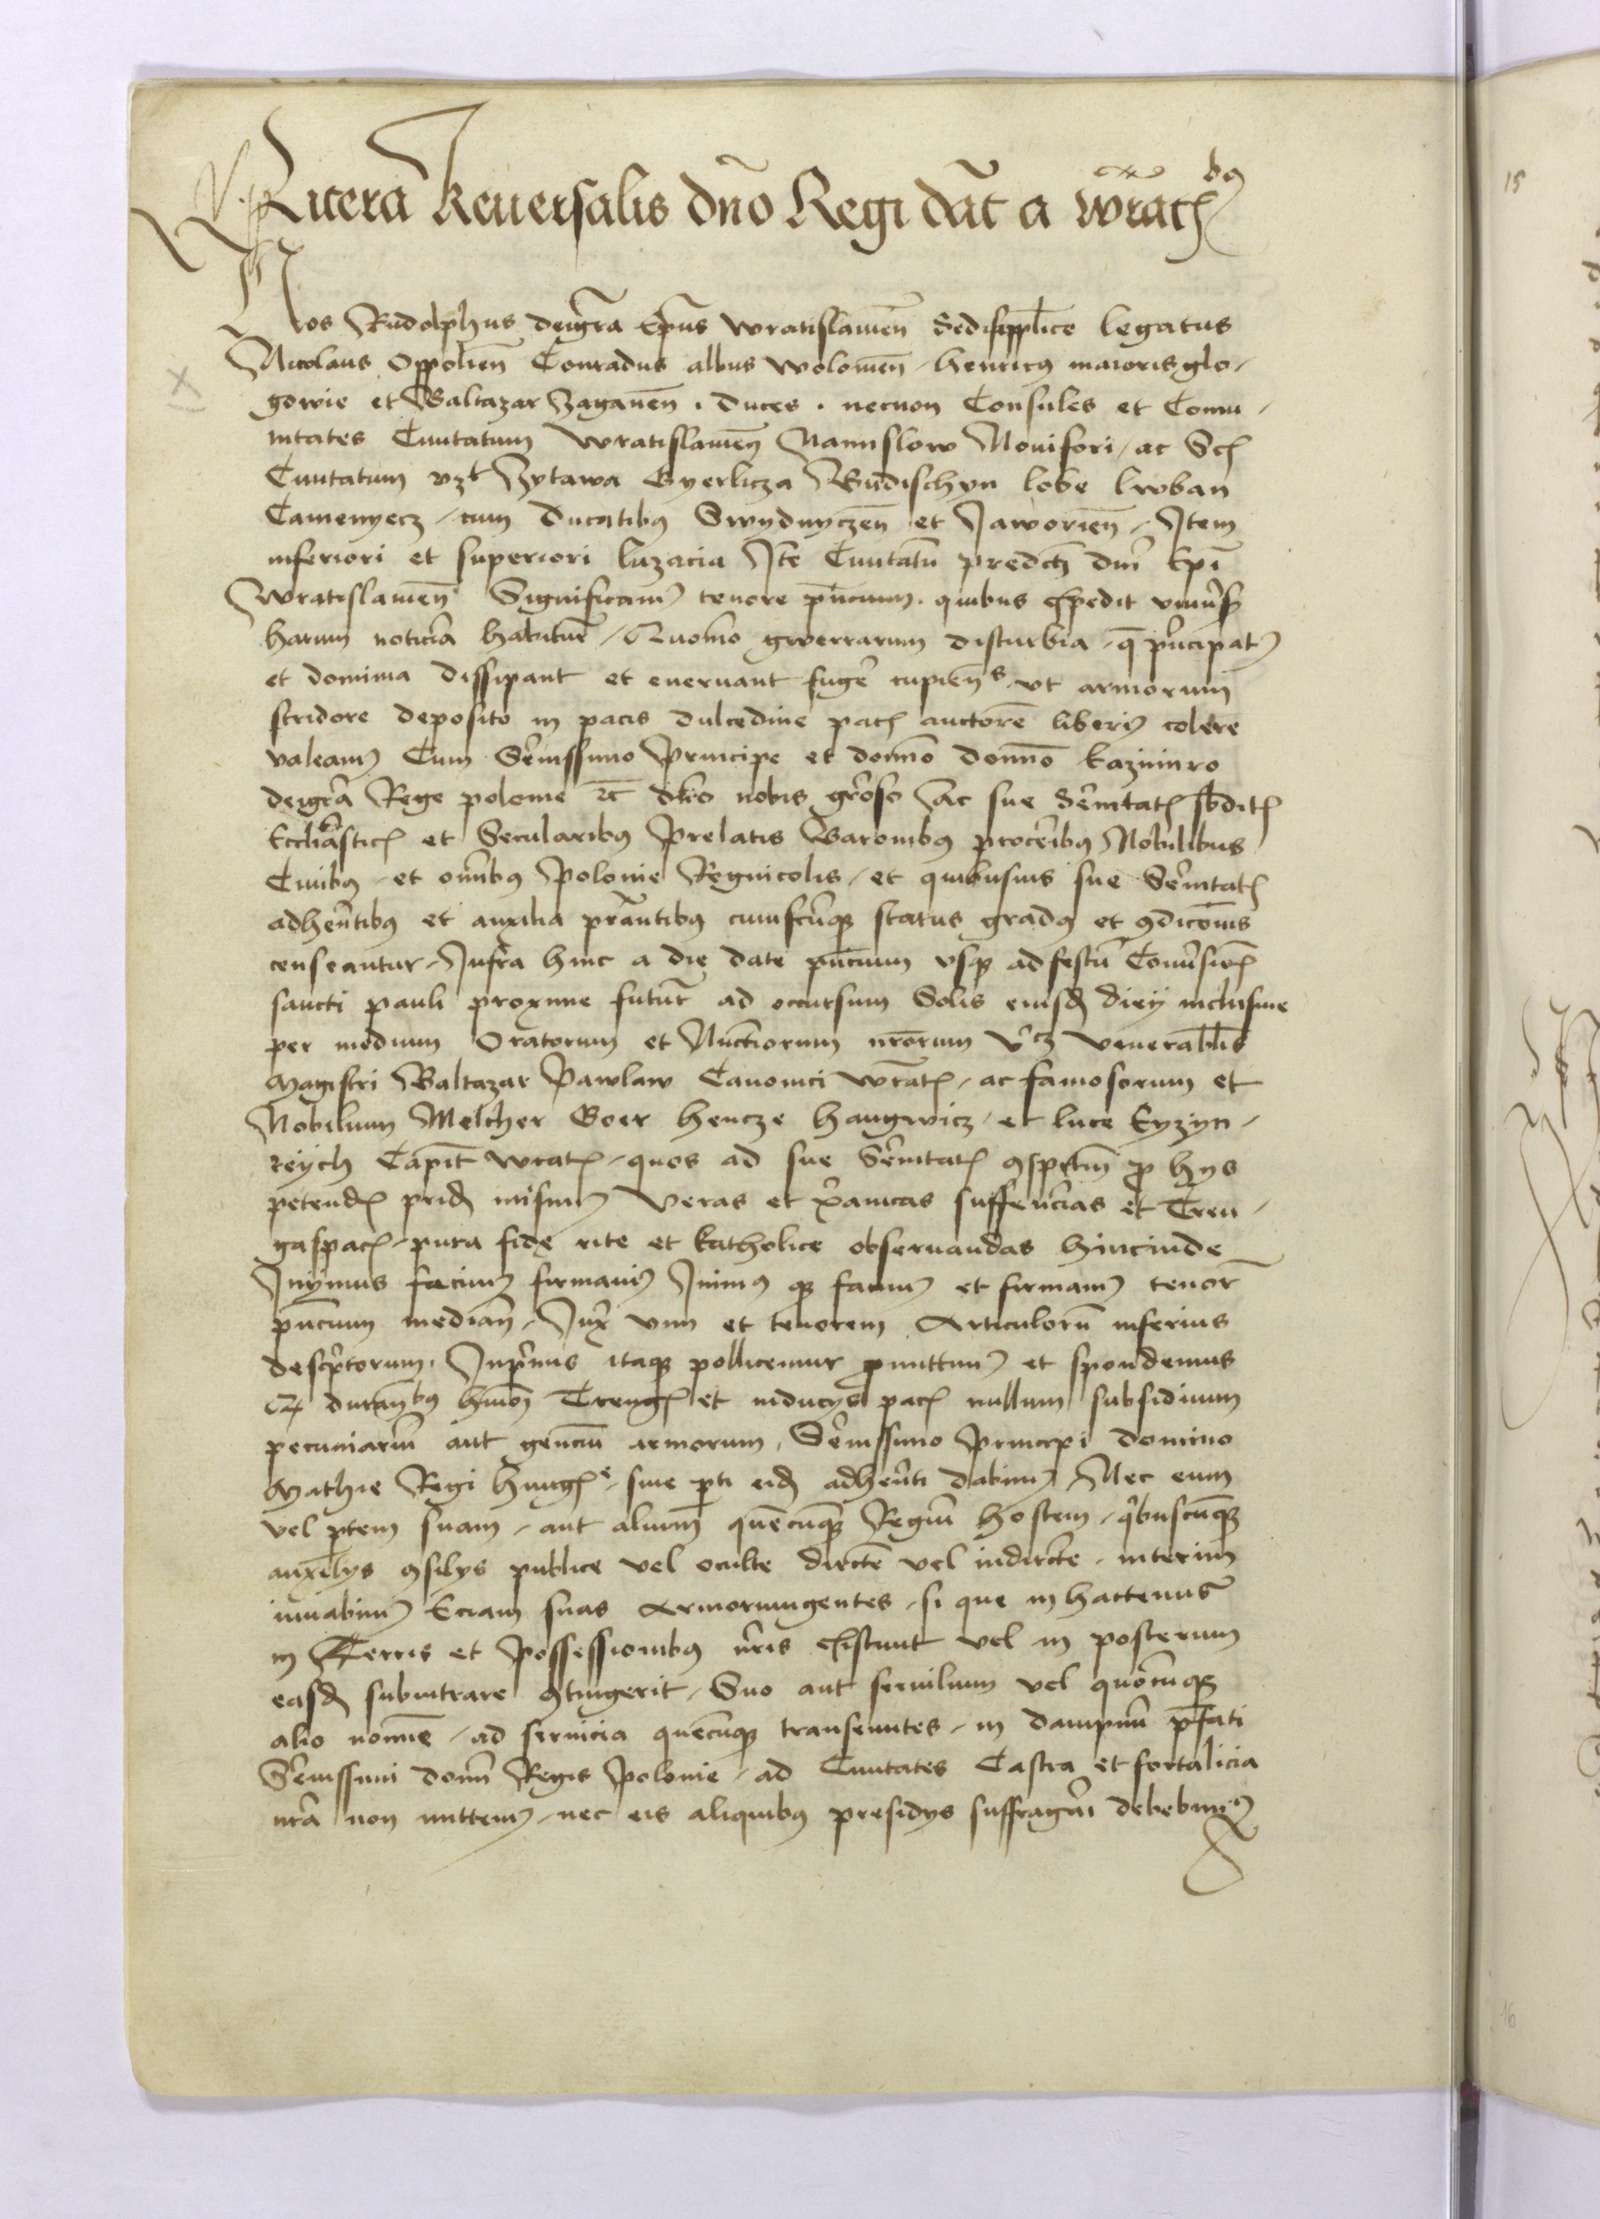 Litera Reuersalis dño Regi dat̃ a wratꝭ bꝰ
Nos Rudolphus deigr̃a Ep̃us wratislauien̄ Sedis applice legatus
Nicolaus Oppolien̄ Conradus albus wolouien̄ henricꝰ maioris glo-
gowie et Baltazar zaganen̄ . duces . necnon Consules et Comu-
nitates Ciuitatum wratislauien̄ Namslow Nouifori ac Sexꝭ
Ciuitatum vzt Zytawa Gyerlicza Budischyn lobe lwban
Camenyecz cum ducatibꝰ Swydnyczen̄ et Jaworien̄ Item
inferiori et superiori luzacia It̃e Ciuitatũ predictꝭ dñi Ep̃i
wratislauien̄ Significamꝰ tenore pñcium quibus expedit vniũsꝭ
harum noticia habiturꝭ Quomõ gwerrarum disturbia q̃ prĩcipatꝰ
et dominia dissipant et eneruant fugẽ cupien̄s vt armorum
stridore deposito in pacis dulcedine pacꝭ auctorẽ liberiꝰ colere
valeamꝰ Cum Sẽnissimo Principe et dom̃no dom̃no Kazimiro
deigr̃a Rege polonie ꝛc̃ dño nobis gr̃oso Ac sue Sẽnitatꝭ sbditꝭ
Eccl̃iasticꝭ et Secularibꝰ Prelatis Baronibꝰ procẽribꝰ Nobilibus
Ciuibꝰ et om̃ibꝰ Polonie Regnicolis et quibusuis sue Sẽnitatꝭ
adherẽtibꝰ et auxilia prãntibꝰ cuiuscũqꝫ status gradꝰ et ꝯdicõnis
censeantur Infra hinc a die date pñcium vsqꝫ ad festũ Conũsiõnꝭ
sancti pauli proxime futurꝭ ad occursum Solis eiusꝭ diey inclusiue
per medium Oratorum et Nũctiorum nr̃orum vꝫ venerabilis
Magistri Baltazar Pawlaw Canonici wratꝭ ac famosorum et
Nobilium Melcher Goer hencze haugwicz et luce Eyzyn-
reych Capit̃ wratꝭ quos ad sue Sẽnitatꝭ ꝯspctũ ꝓ hys
petendꝭ pridẽ misimꝰ Veras et x̃anicas sufferẽcias et Treu-
gaspacꝭ pura fide rite et katholice obseruandas hincinde
Inyimus fecimꝰ firmauimꝰ Inimꝰ qꝫ facimꝰ et firmamꝰ tenorẽ
pñcium median̄ Juxꝭ vim et tenorem Articulorũ inferius
descp̃torum Inprĩmis itaqꝫ pollicemur ꝓmittimꝰ et spondemus
Qꝫ duran̄bꝰ hmõi Treugꝭ et inducys pacꝭ nullum subsidium
pecuniariũ aut genciũ armorum Sẽnissimo Principi domino
Mathie Regi hungꝭe siue pti eidẽ adherẽti dabimꝰ Nec eum
vel ptem suam aut alium quẽcũqꝫ Regni hostem qĩbuscũqꝫ
auxilys ꝯsilys publice vel oculte dirctẽ vel indircte interim
iuuabimꝰ Eciam suas Armorumgentes si que in hactenus
in Terris et Possessionibꝰ nr̃is existunt vel in posterum
easdꝭ subintrare ꝯtingerit Suo aut seruilium vel quouisqꝫ
alio noĩe ad seruicia quecũqꝫ transeuntes in dampnũ pfati
Sẽnissimi domĩ Regis Polonie ad Ciuitates Castra et fortalicia
nr̃a non mittemꝰ nec eis aliquibꝰ presidys suffragari debebimꝰ
15
16